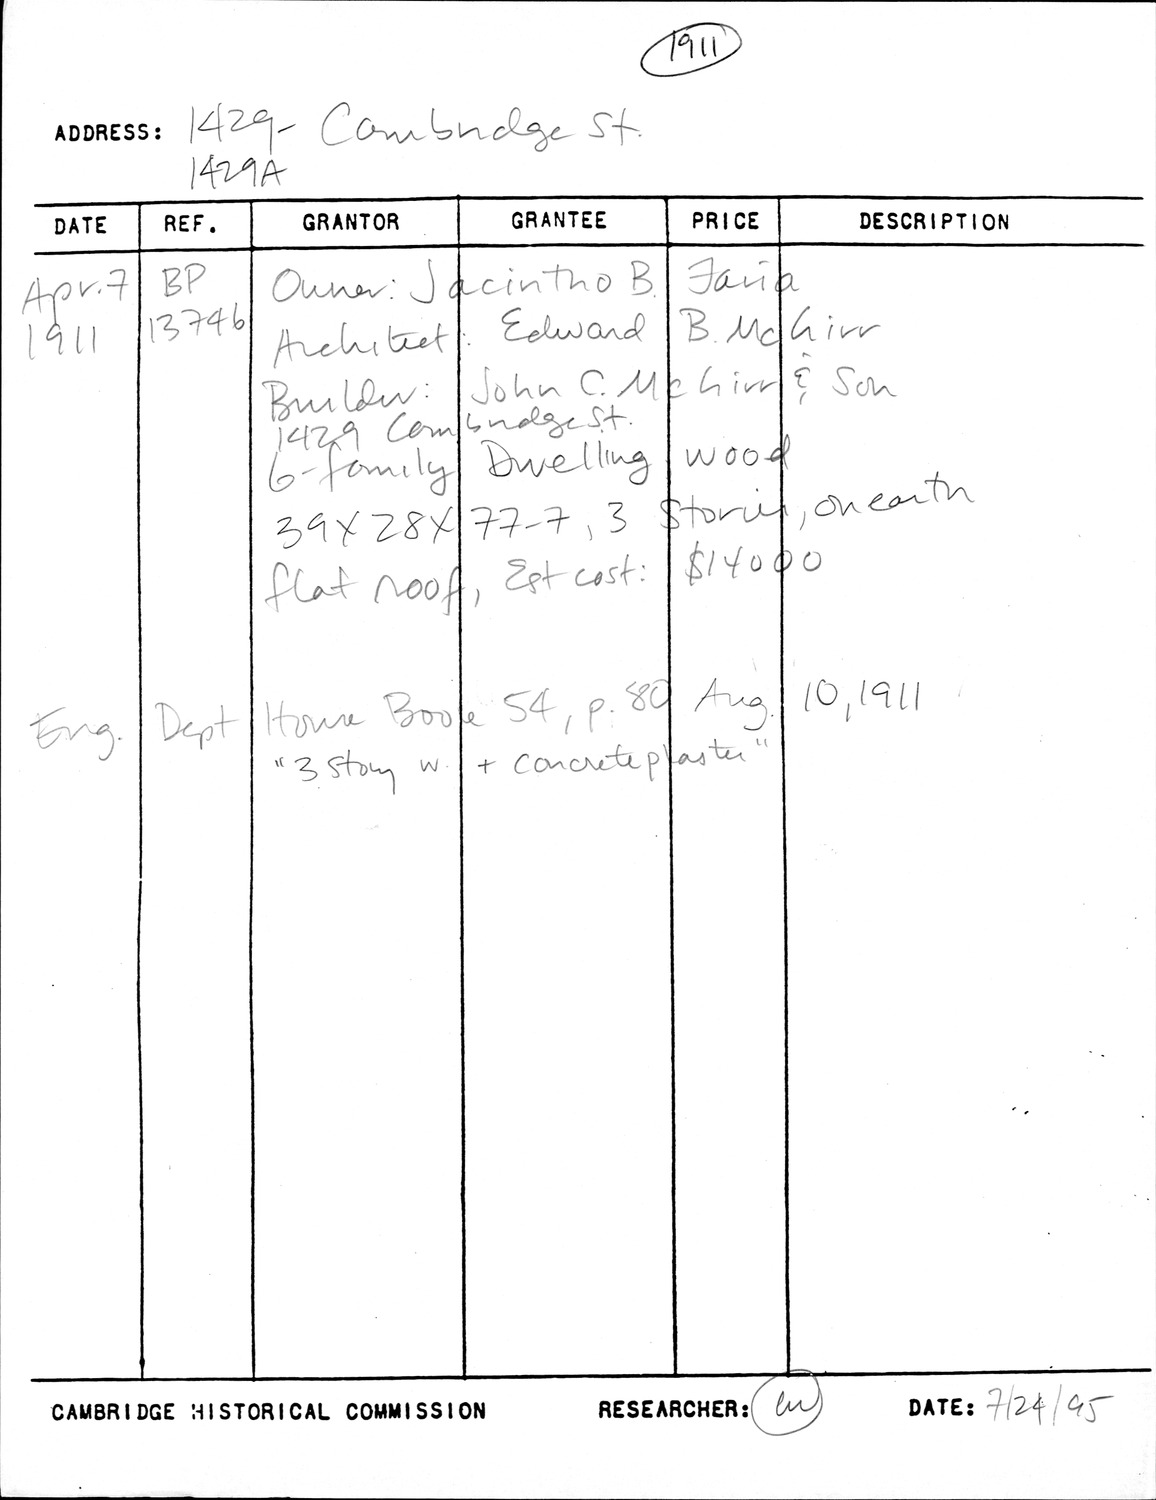 1911
ADDRESS: 1429- Cambridge St.
1429A
DATE REF. GRANTOR GRANTEE PRICE DESCRIPTION
Apr. 7 BP Owner: Jacintho B. Faria
1911 13746 Architect: Edward B. McGirr
Builder: John C. McGirr & Son
1429 Cambridge St.
6-family Dwelling wood
39X28X77-7, 3 Stories, on earth
flat roof, Est cost: $14000
Eng. Dept House Book 54, p. 80 Aug. 10, 1911
"3 story w. + concrete plaster"
CAMBRIDGE HISTORICAL COMMISSION RESEARCHER: DATE: 7/24/95